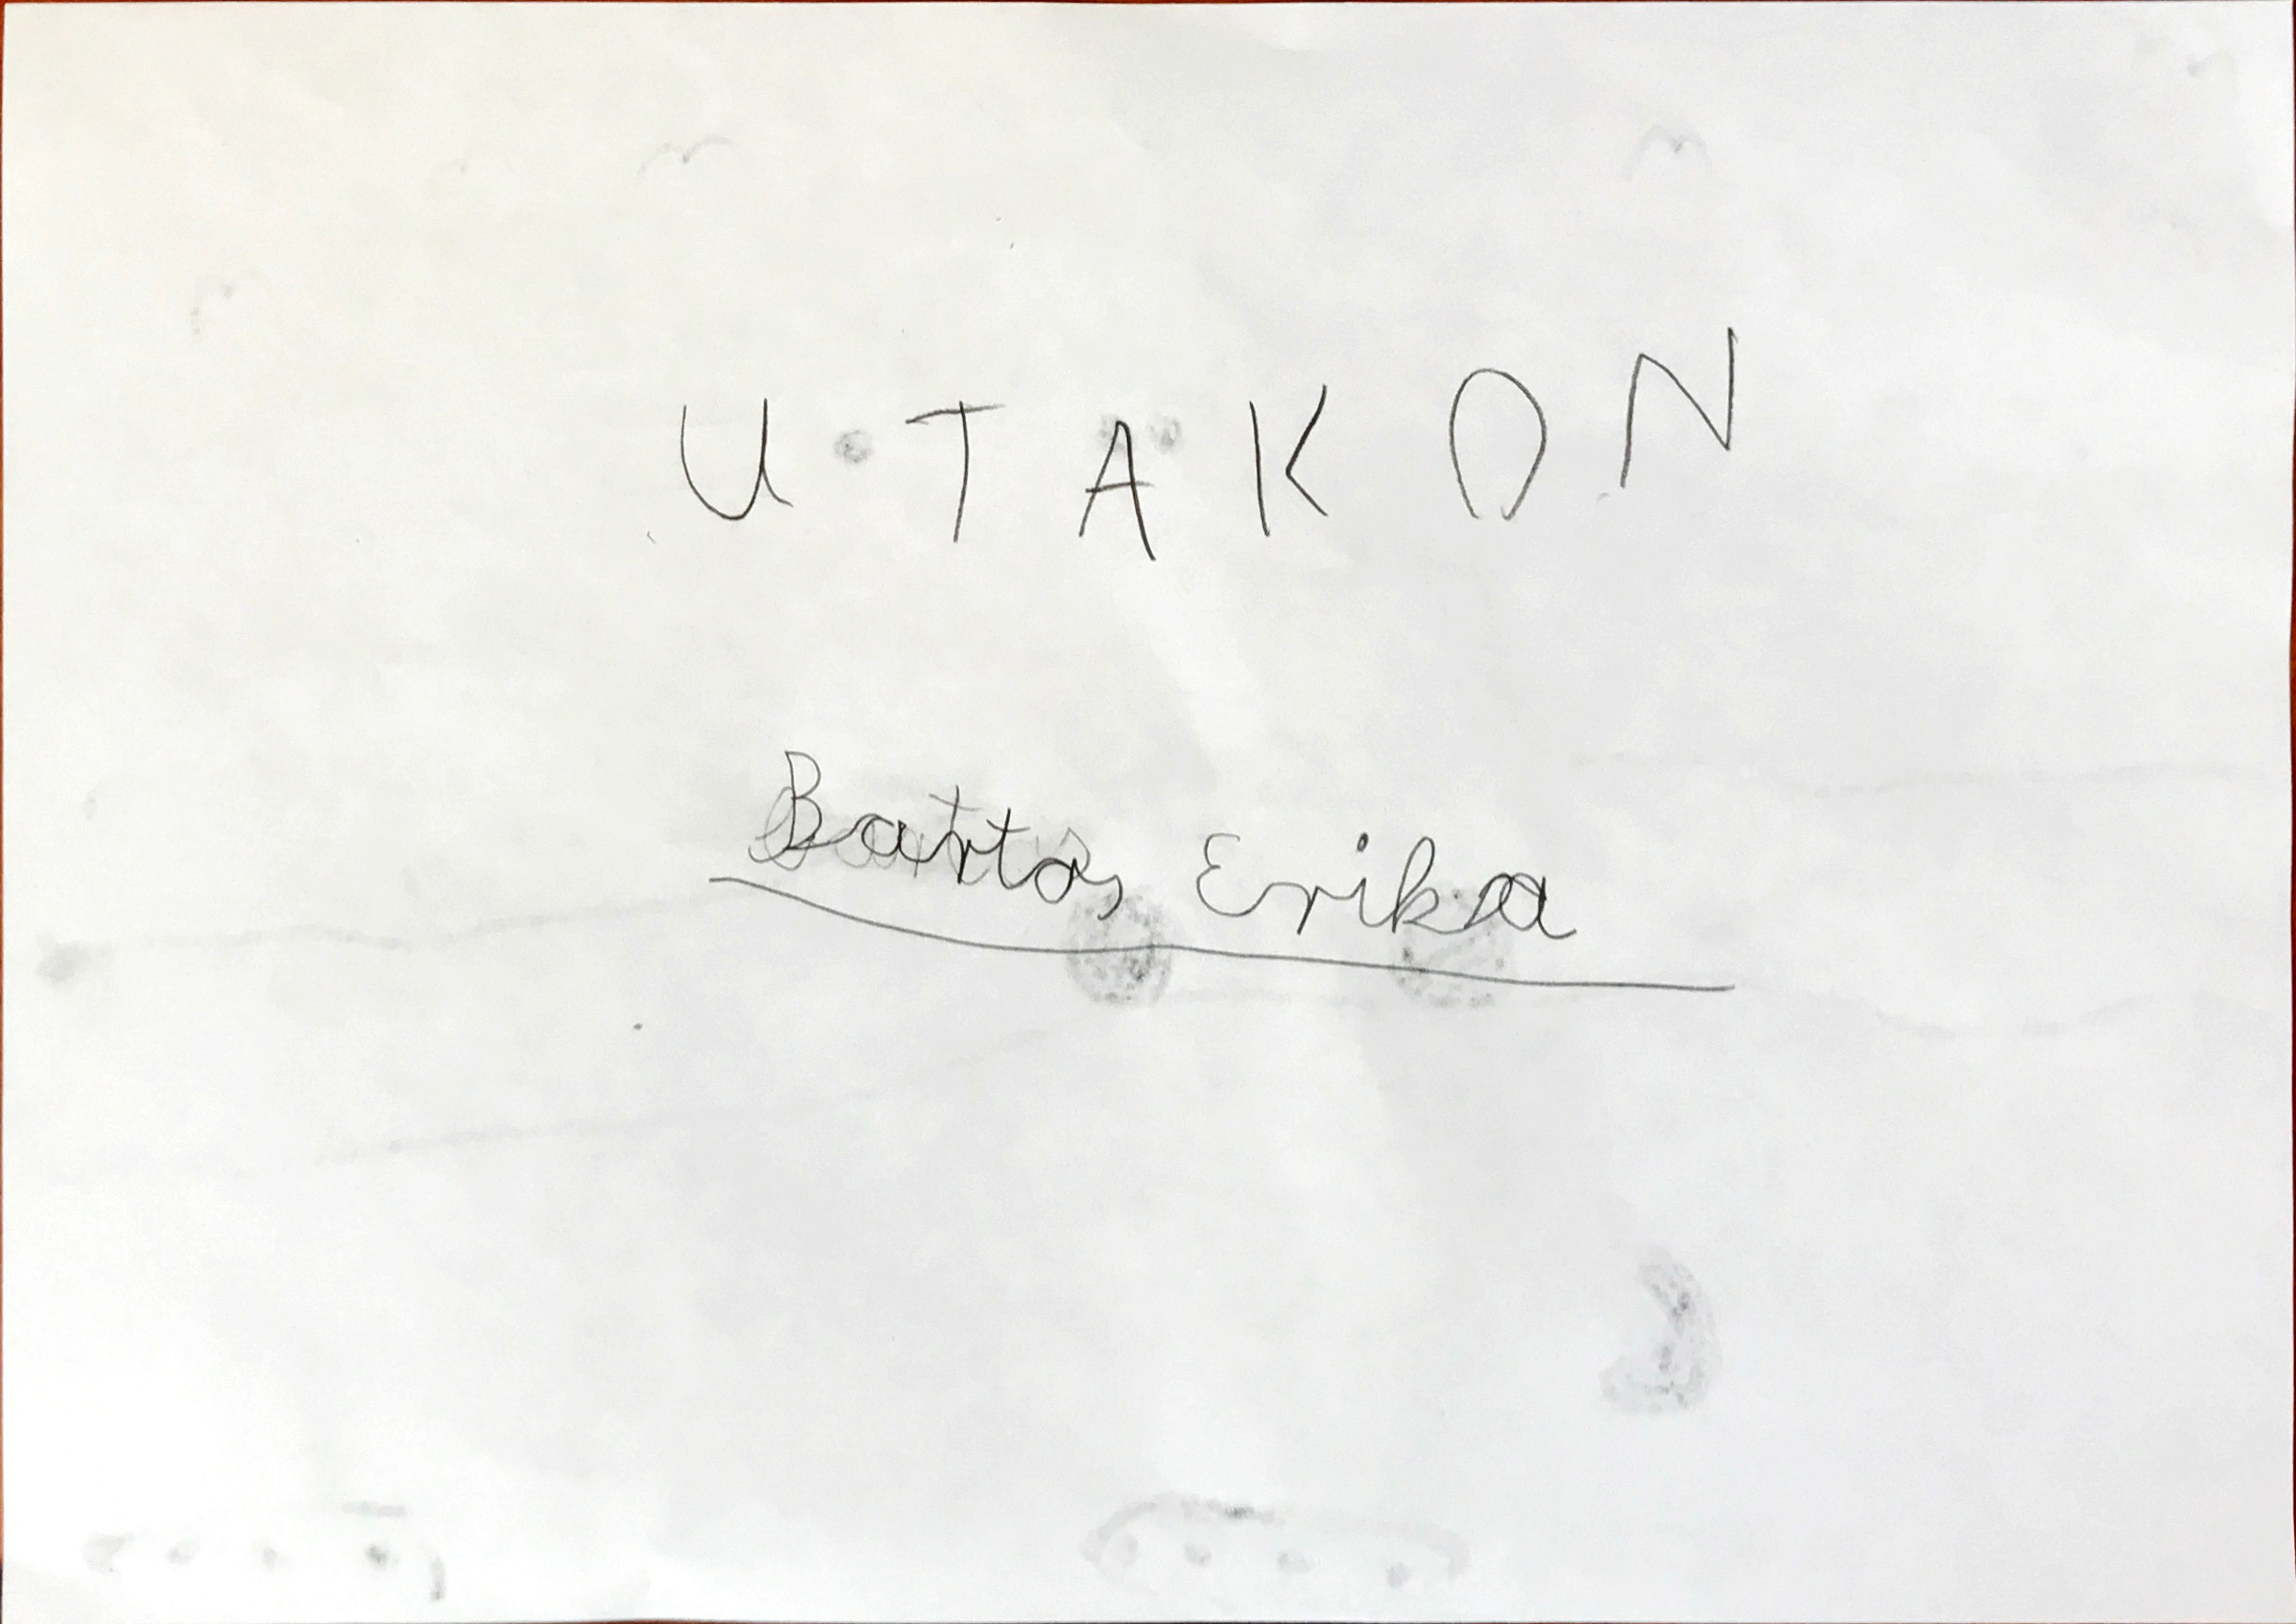 UTAKON
Bartos Erika